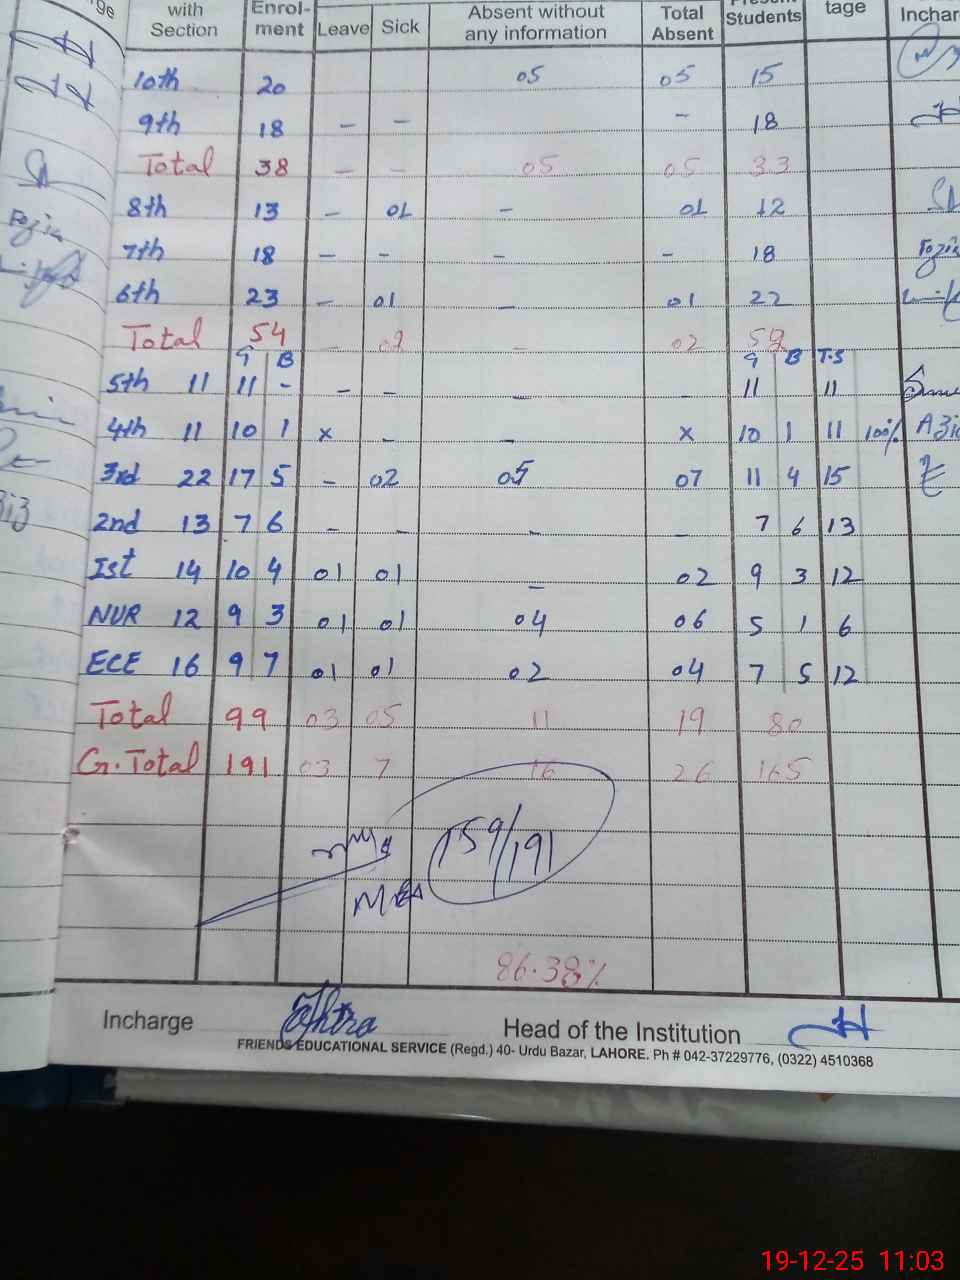 with Section Enrolment Leave Sick Absent without any information Total Absent Present Students tage Inchar
10th 20 05 05 15
9th 18 - - - 18
Total 38 - - 05 05 33
8th 13 - 01 - 01 12
7th 18 - - - - 18 Fozia
6th 23 - 01 - 01 22
Total 54 - 02 - 02 52
G B G B T.S
5th 11 11 - - - - - 11 11
4th 11 10 1 x - - x 10 1 11 100%
3rd 22 17 5 - 02 05 07 11 4 15
2nd 13 7 6 - - - - 7 6 13
Ist 14 10 4 01 01 - 02 9 3 12
NUR 12 9 3 01 01 04 06 5 1 6
ECE 16 9 7 01 01 02 04 7 5 12
Total 99 03 05 11 19 80
G.Total 191 03 7 16 26 165
159/191
MEA
86.38%
Incharge Head of the Institution
FRIENDS EDUCATIONAL SERVICE (Regd.) 40- Urdu Bazar, LAHORE. Ph # 042-37229776, (0322) 4510368
19-12-25 11:03